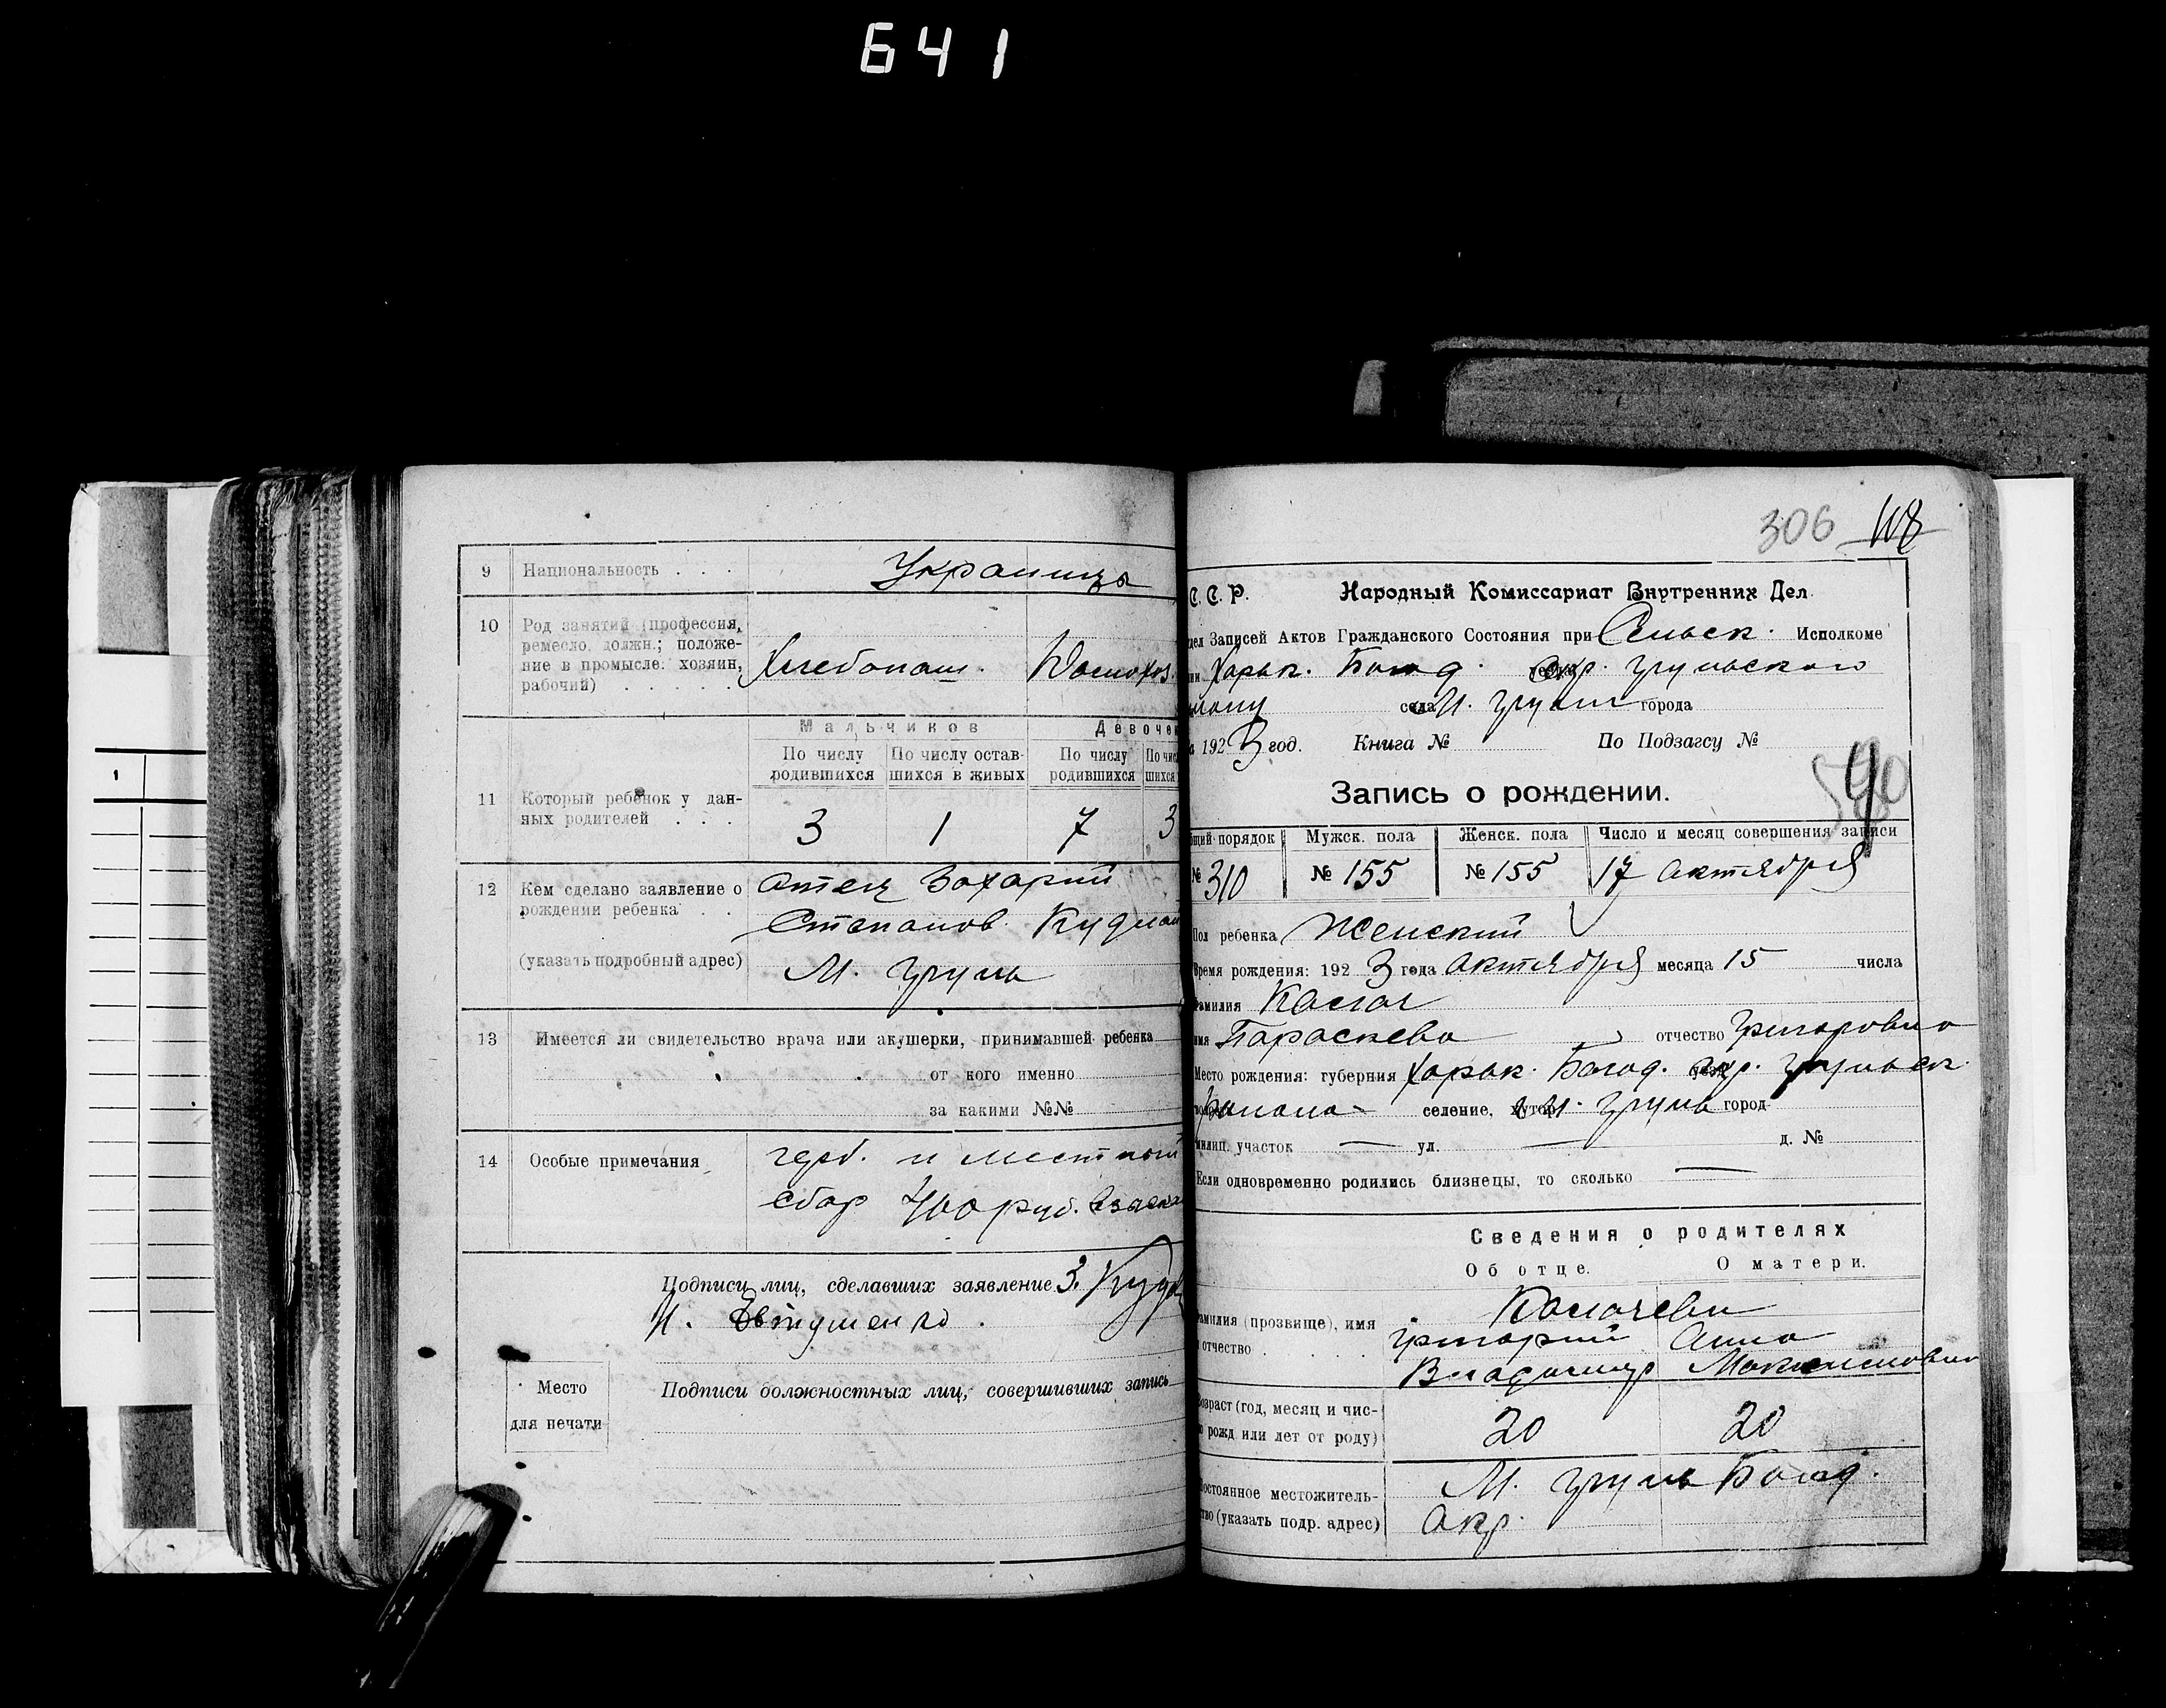 641
9 Национальность . . . Украинцы
10 Род занятий (профессия,
ремесло, должн.; положе-
ние в промысле: хозяин,
рабочий) . . . . . Хлебопаш. Домохоз.
Мальчиков Девочек
По числу родившихся По числу остав-шихся в живых По числу родившихся
11 Который ребенок у дан-
ных родителей . . . 3 1 7 3
12 Кем сделано заявление о отец Захарий
рождении ребенка . . Степанов
(указать подробный адрес) М. Грунь
13 Имеется ли свидетельство врача или акушерки, принимавшей ребенка
от кого именно
за какими №№
14 Особые примечания герб. и местный
сбор 400 руб.
Подписи лиц, сделавших заявление З.
Место
для печати
Подписи должностных лиц, совершивших запись
306 118
С. С. Р. Народный Комиссариат Внутренних Дел.
Записей Актов Гражданского Состояния при Сельск. Исполкоме
Харьк. Богод. окр. Грунського
села М. Грунь города
1923 год. Книга № По Подзагсу №
Запись о рождении.
порядок Мужск. пола Женск. пола Число и месяц совершения записи
№ 310 № 155 № 155 17 октября
Пол ребенка Женский
Время рождения: 1923 года октября месяца 15 числа
Фамилия Калач
имя Параскева отчество Григоровна
Место рождения: губерния Харьк. Богод. окр. Грунськ.
района селение, хутор М. Грунь город
милиц. участок — ул. — д. №
Если одновременно родились близнецы, то сколько —
Сведения о родителях
Об отце. О матери.
Калачеви
Фамилия (прозвище), имя Григорий Анна
и отчество . . . . Владимир Максимовна
Возраст (год, месяц и чис-
рожд. или лет от роду) 20 20
Постоянное местожитель- М. Грунь Богод.
ство (указать подр. адрес) окр.